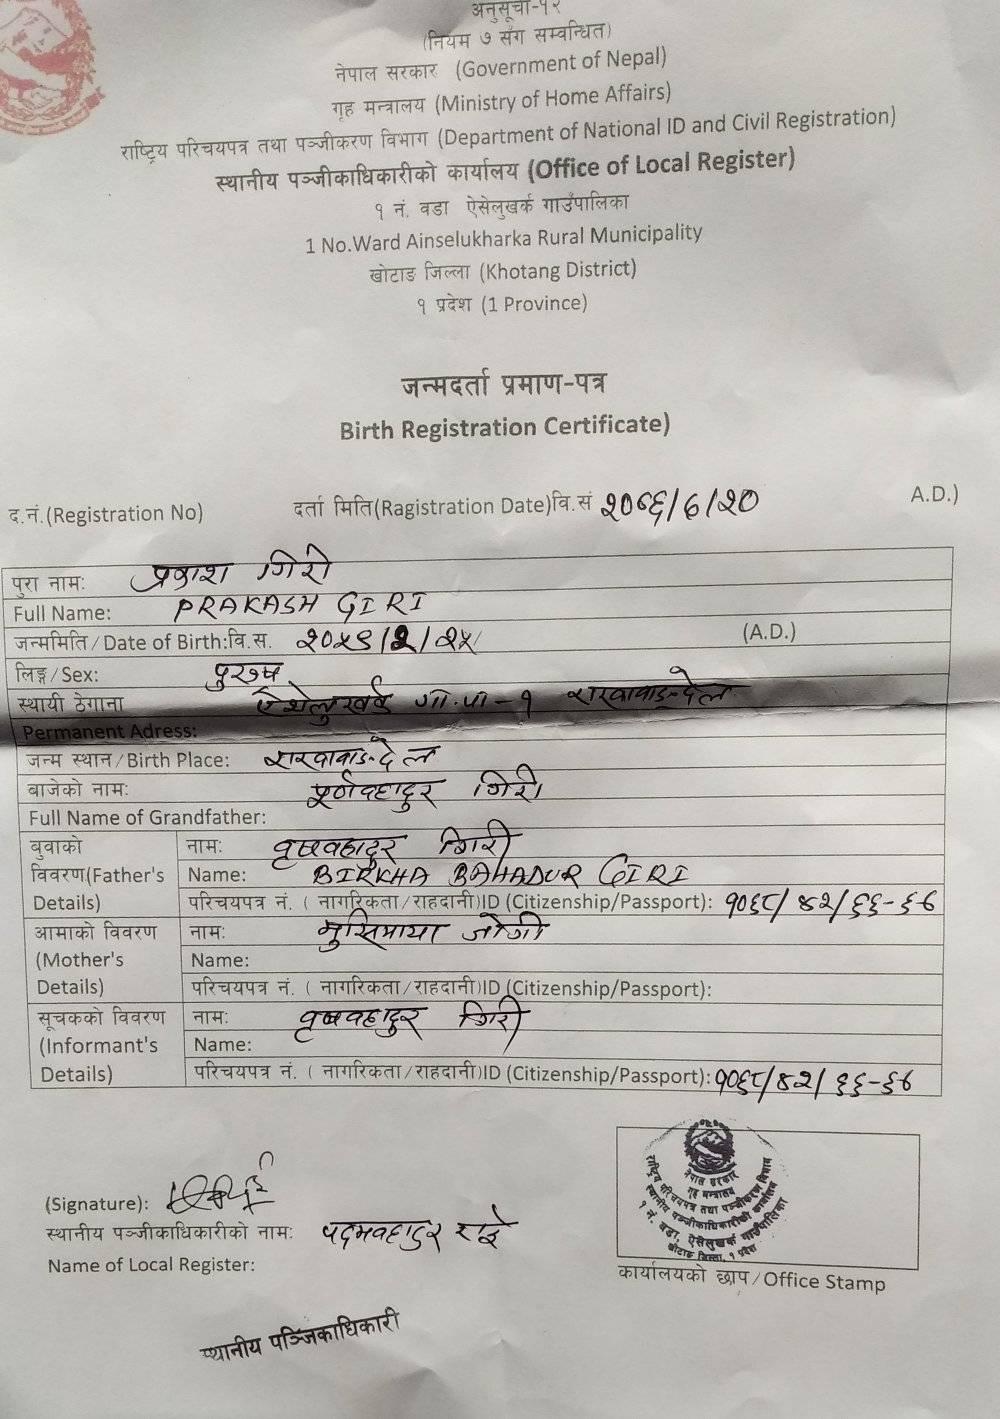 अनुसूची-१२
(नियम ७ सँग सम्वन्धित)
नेपाल सरकार (Government of Nepal)
गृह मन्त्रालय (Ministry of Home Affairs)
राष्ट्रिय परिचयपत्र तथा पञ्जीकरण विभाग (Department of National ID and Civil Registration)
स्थानीय पञ्जीकाधिकारीको कार्यालय (Office of Local Register)
१ नं. वडा ऐसेलुखर्क गाउँपालिका
1 No.Ward Ainselukharka Rural Municipality
खोटाङ जिल्ला (Khotang District)
१ प्रदेश (1 Province)
जन्मदर्ता प्रमाण-पत्र
Birth Registration Certificate)
द.नं.(Registration No) दर्ता मिति(Ragistration Date)वि.सं २०७६/७/२० A.D.)
पुरा नाम: प्रकाश गिरी
Full Name: PRAKASH GIRI
जन्ममिति/Date of Birth:वि.स. २०५९/२/२५ (A.D.)
लिङ्ग/Sex: पुरुष
स्थायी ठेगाना ऐशेलुखर्क गा.पा-१
Permanent Adress:
जन्म स्थान/Birth Place:
बाजेको नाम: पूर्णवहादुर गिरी
Full Name of Grandfather:
बुवाको विवरण(Father's Details) नाम: वृषवहादुर गिरी
Name: BIRKHA BAHADUR GIRI
परिचयपत्र नं. ( नागरिकता/राहदानी)ID (Citizenship/Passport): १०६८/४२/६६-६७
आमाको विवरण (Mother's Details) नाम: मुसिमाया जोगी
Name:
परिचयपत्र नं. ( नागरिकता/राहदानी)ID (Citizenship/Passport):
सूचकको विवरण (Informant's Details) नाम: वृषवहादुर गिरी
Name:
परिचयपत्र नं. ( नागरिकता/राहदानी)ID (Citizenship/Passport): १०६८/४२/६६-६७
(Signature):
स्थानीय पञ्जीकाधिकारीको नाम: पदमवहादुर राई
Name of Local Register:
स्थानीय पञ्जिकाधिकारी
नेपाल सरकार
गृह मन्त्रालय
राष्ट्रिय परिचयपत्र तथा पञ्जीकरण विभाग
स्थानीय पञ्जीकाधिकारीको कार्यालय
१ नं. वडा, ऐसेलुखर्क गाउँपालिका
खोटाङ जिल्ला, १ प्रदेश
कार्यालयको छाप/Office Stamp